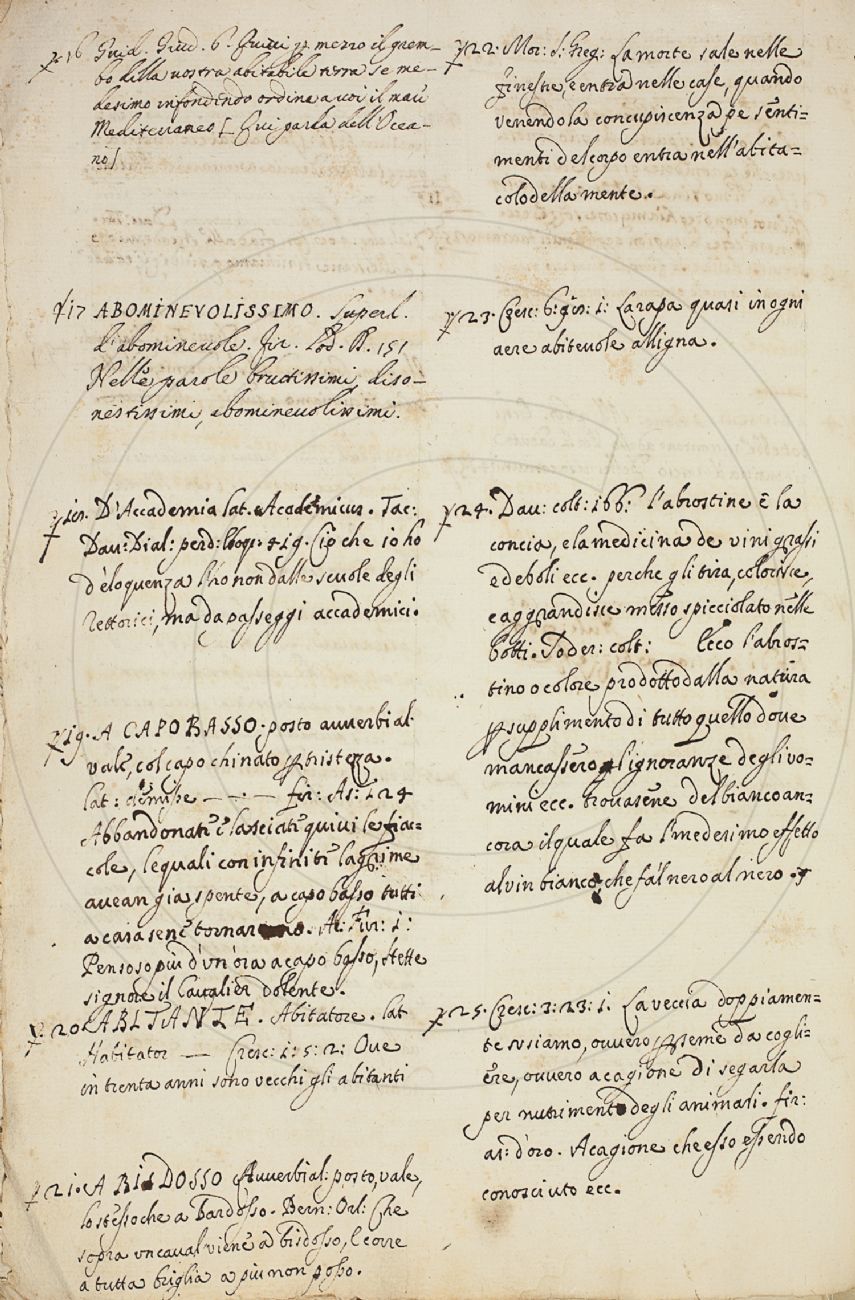 16 Guid. Giud. 6. Quasi per mezzo il grem-
bo della nostra abitabile terra se me-
desimo infondendo ordina a noi il mare
Mediterraneo [Qui parla dell'Ocea-
no]
17 ABOMINEVOLISSIMO. Superl.
d'abominevole. fir. 151
Nelle parole bruttissimi, diso-
nestissimi, abominevolissimi.
D'Accademia lat. Academicus. Tac:
Dau: Dial: perd: eloq: 419. Ciò che io ho
d'eloquenza l'ho non dalle scuole degli
rettorici, ma da passeggi accademici.
19. A CAPO BASSO: posto avverbial
vale, col capo chinato per tristezza.
lat: demisse — · — fir: As: 124
Abbandonati e lasciati quivi le fiac=
cole, le quali con infinite lagrime
avean gia spente, a capo basso tutti
a casa sene tornarono. Ar: Fur: 1:
Pensoso più d'un'ora a capo basso, stette
signore il Cavalier dolente.
20. ABITANTE. Abitatore. lat
Habitator — Cresc: 1: 5: 2: Ove
in trenta anni sono vecchi gli abitanti
21. A BISDOSSO Avverbial: posto, vale,
lo stesso che a bardosso. Bern: Orl: Che
sopra un caval viene a bisdosso, e corre
a tutta briglia a più non posso.
22. Mor: S: Greg: La morte sale nelle
finestre, e entra nelle case, quando
venendo la concupiscenza pe senti=
menti del corpo entra nell'abita=
colo della mente.
23. Cresc: 6: 1: La rapa quasi in ogni
aere abitevole alligna.
24. Dav: colt: 166: l'abrostine è la
concia, e la medicina de vini grassi
e deboli ecc. perche gli tira, colorisce,
e aggrandisce messo spicciolato nelle
botti. Soder: colt: Ecco l'abros=
tino o colore prodotto dalla natura
per supplimento di tutto quello dove
mancassero gl'ignoranze degli vo=
mini ecc. trovasene del bianco an=
cora il quale fa l'medesimo effetto
al vin bianco, che fa'l nero al nero.
25. Cresc: 3: 23: 1. La veccia doppiamen=
te seminiamo, ovvero per seme da cogli=
ere, ovvero a cagione di segarla
per nutrimento degli animali. fir:
as: d'oro. A cagione che esso essendo
conosciuto ecc.